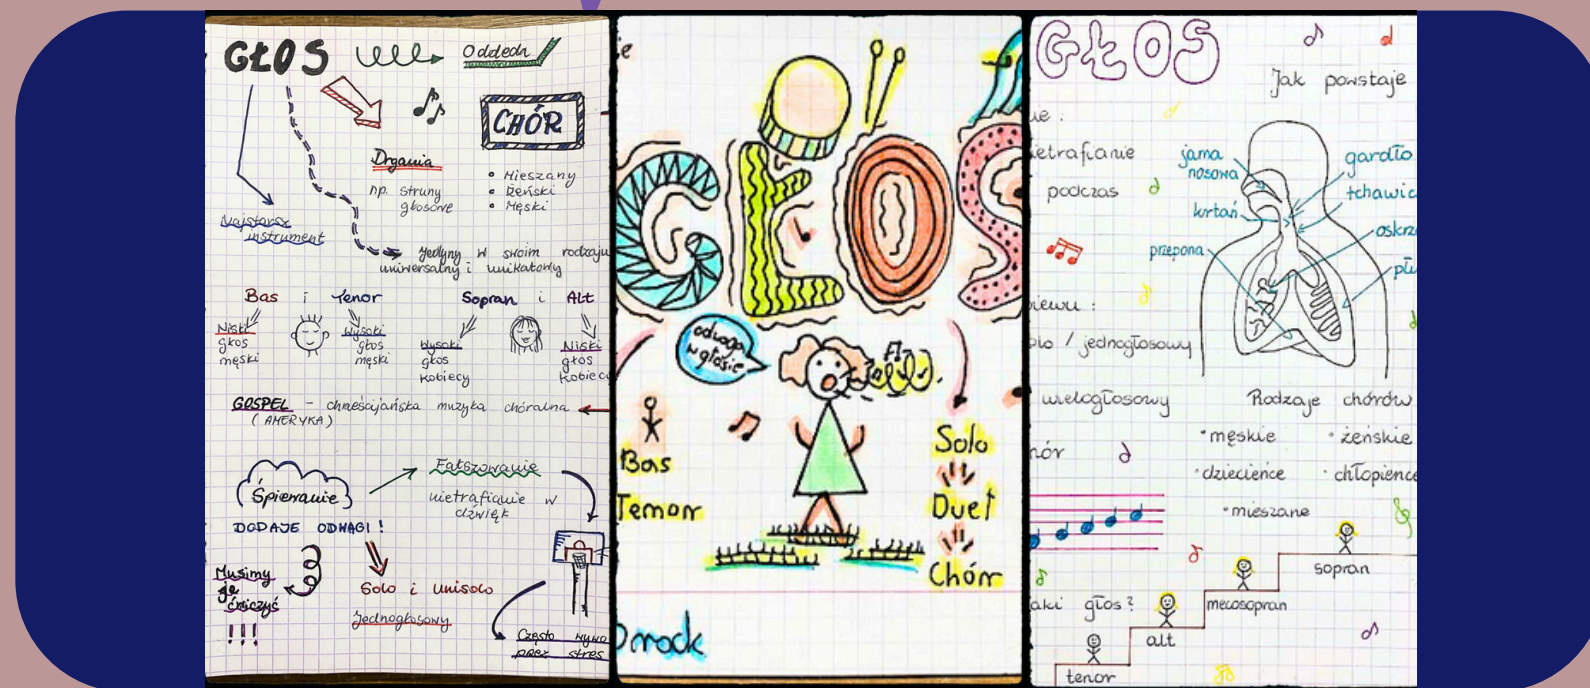 GŁOS
Oddech
CHÓR
Drgania
np. struny
głosowe
• Mieszany
• Żeński
• Męski
Najstarszy
instrument
Jedyny w swoim rodzaju
uniwersalny i unikatowy
Bas i Tenor
Sopran i Alt
Niski
głos
męski
Wysoki
głos
męski
Wysoki
głos
kobiecy
Niski
głos
kobiecy
GOSPEL - chrześcijańska muzyka chóralna
(AMERYKA)
Śpiewanie
DODAJE ODWAGI!
Fałszowanie
nietrafianie w
dźwięk
Musimy
je
ćwiczyć
!!!
Solo i Unisolo
Jednogłosowy
Często
przez stres
GŁOS
odwaga
w głosie
Bas
Temor
Solo
Duet
Chór
GŁOS
Jak powstaje
nietrafianie
podczas
jama
nosowa
krtań
przepona
gardło
tchawic
oskrz
płu
śpiewu :
solo / jednogłosowy
wielogłosowy
chór
Rodzaje chórów
• męskie
• żeńskie
• dziecięce
• chłopięce
• mieszane
jaki głos?
sopran
mecosopran
alt
tenor